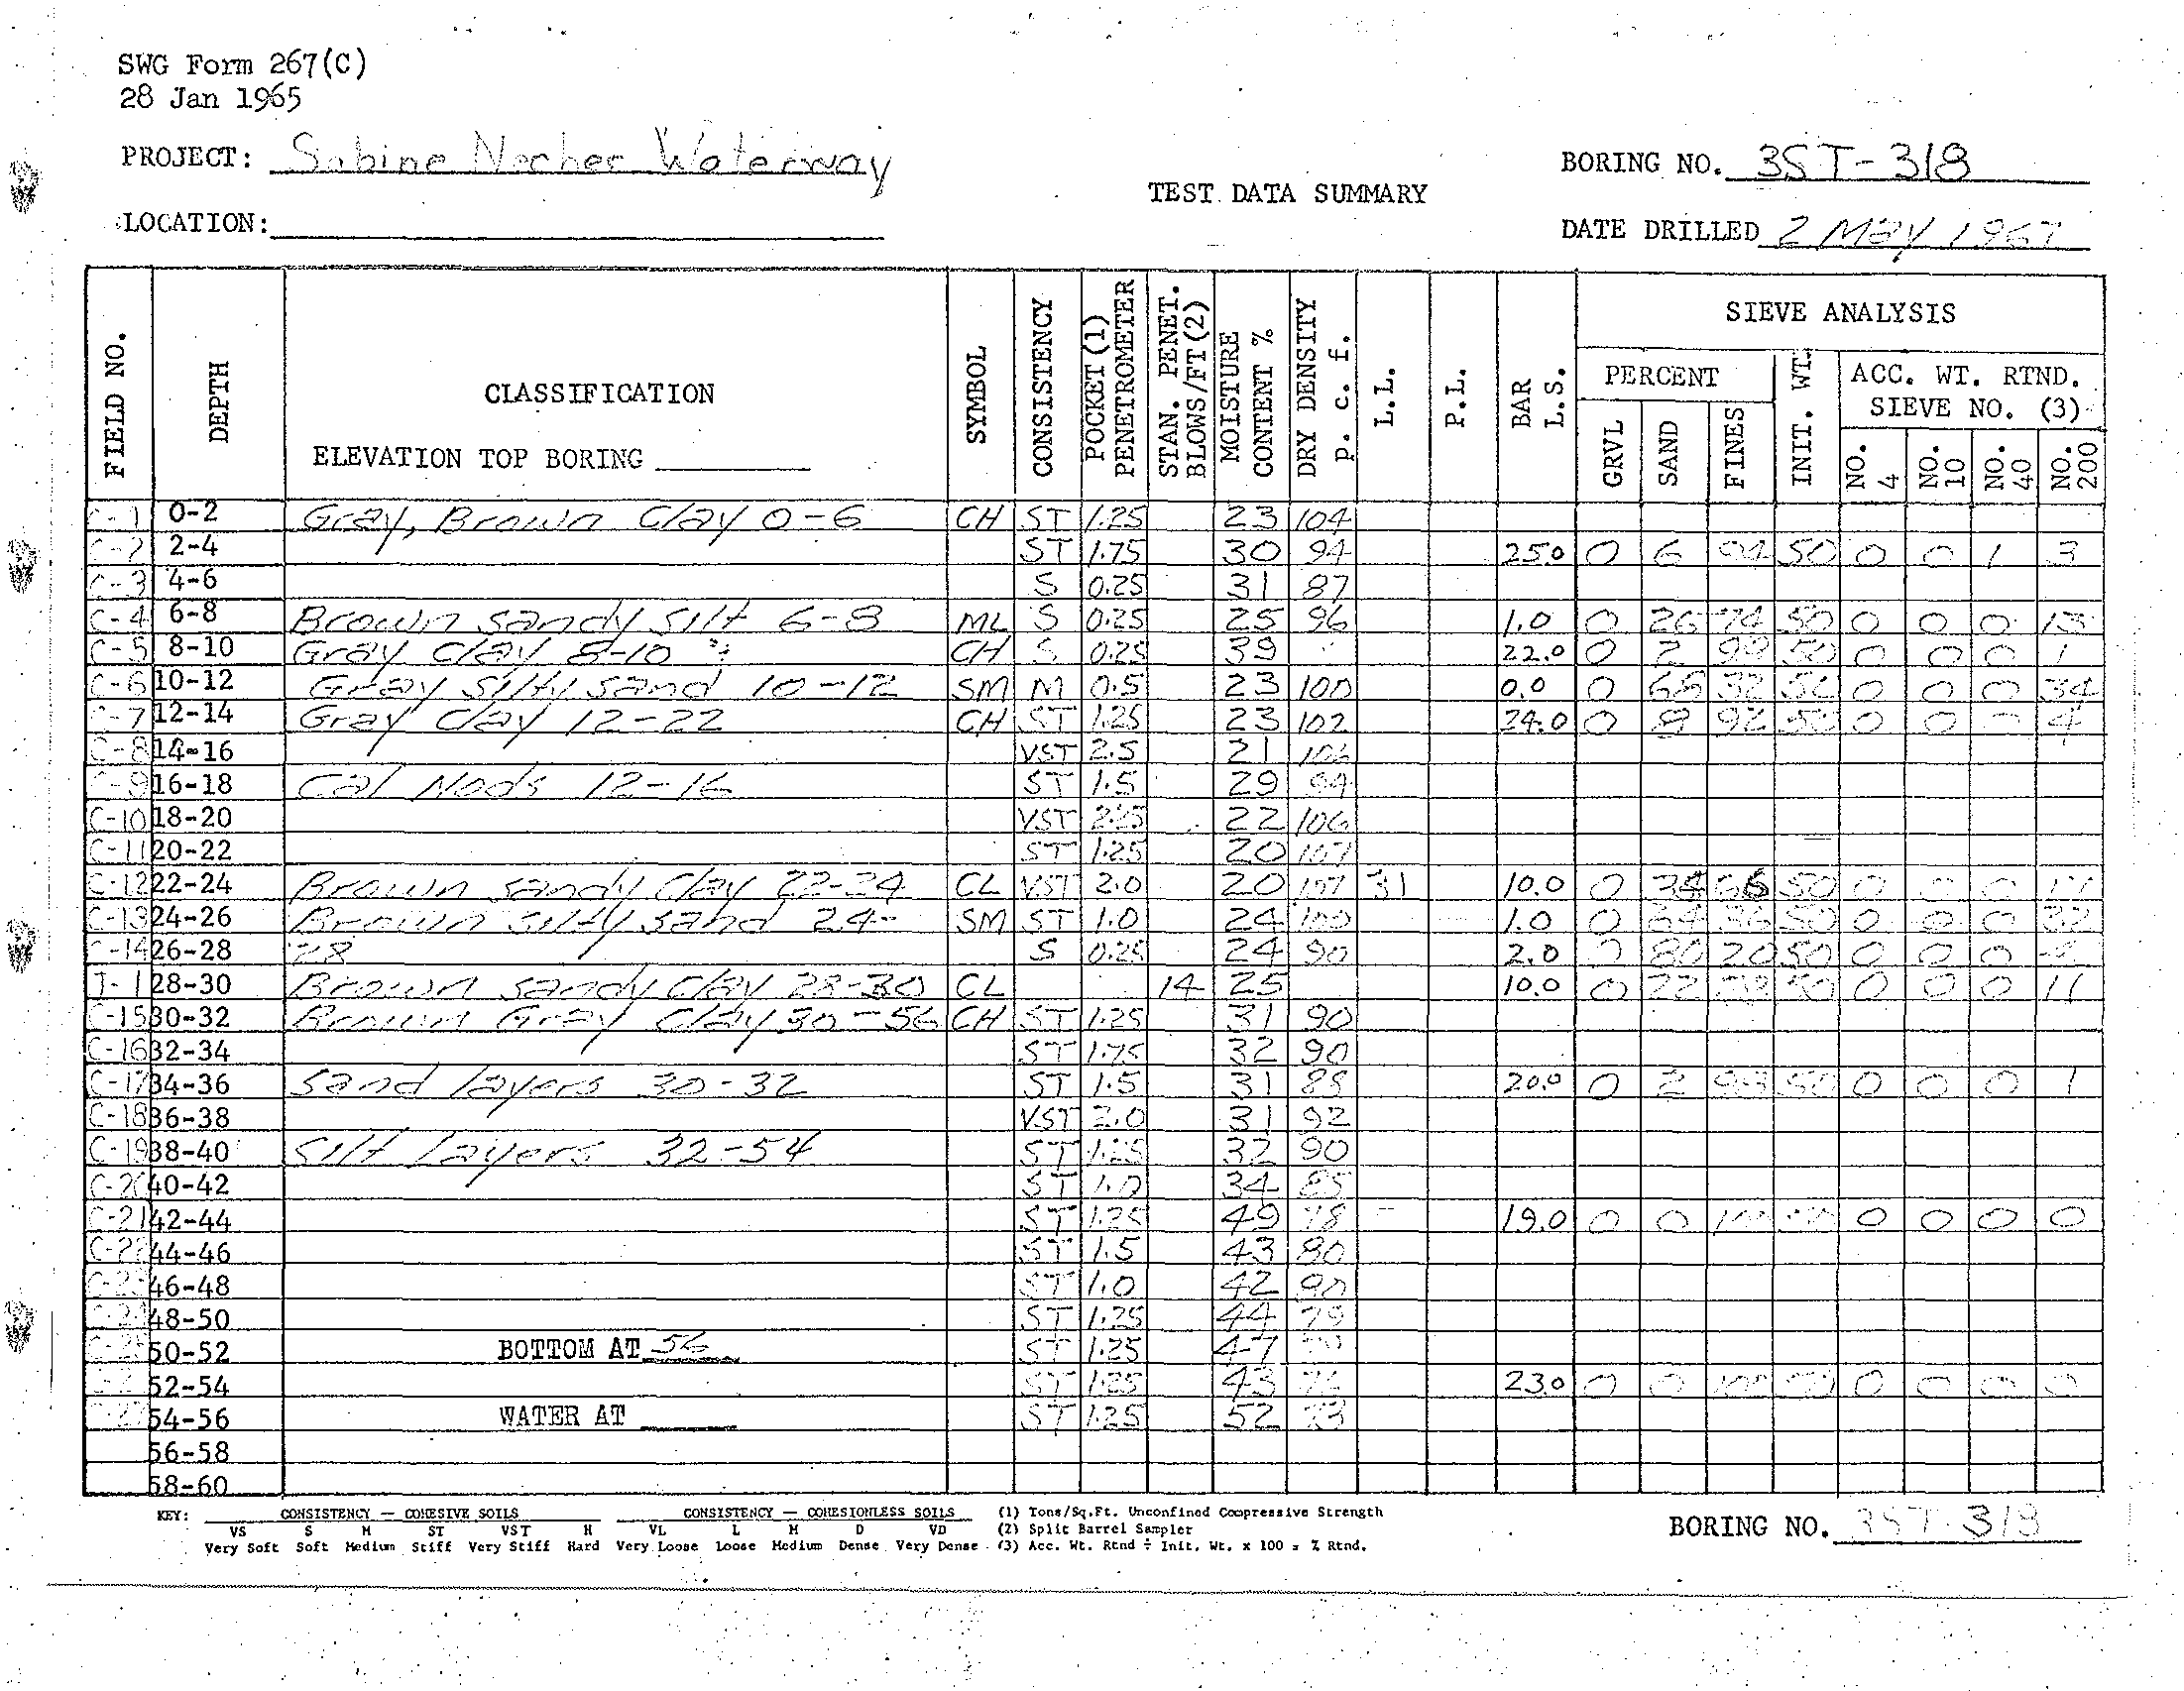 SWG Form 267(C)
28 Jan 1965
PROJECT: Sabine Neches Waterway
BORING NO. 3ST-318
TEST DATA SUMMARY
LOCATION:
DATE DRILLED 2 May 1967
FIELD NO. DEPTH CLASSIFICATION SYMBOL CONSISTENCY POCKET (1) PENETROMETER STAN. PENET. BLOWS/FT (2) MOISTURE CONTENT % DRY DENSITY p. c. f. L.L. P.L. BAR L.S. SIEVE ANALYSIS
PERCENT INIT. WT. ACC. WT. RTND. SIEVE NO. (3)
ELEVATION TOP BORING
GRVL SAND FINES NO. 4 NO. 10 NO. 40 NO. 200
C-1 0-2 Gray, Brown Clay 0-6 CH ST 1.25 23 104
C-2 2-4 ST 1.75 30 94 25.0 0 6 94 50 0 0 1 3
C-3 4-6 S 0.25 31 87
C-4 6-8 Brown sandy silt 6-8 ML S 0.25 25 96 1.0 0 26 74 50 0 0 0 13
C-5 8-10 Gray Clay 8-10 CH S 0.25 39 22.0 0 2 98 50 0 0 0 1
C-6 10-12 Gray silty sand 10-12 SM M 0.5 23 100 0.0 0 68 32 50 0 0 0 34
C-7 12-14 Gray Clay 12-22 CH ST 1.25 23 102 24.0 0 8 92 50 0 0 4
C-8 14-16 VST 2.5 21 106
C-9 16-18 Cal Nods 12-16 ST 1.5 29 94
C-10 18-20 VST 2.25 22 106
C-11 20-22 ST 1.25 20 107
C-12 22-24 Brown sandy Clay 22-24 CL VST 2.0 20 107 31 10.0 0 34 66 50 0 0 0 17
C-13 24-26 Brown silty sand 24- SM ST 1.0 24 100 1.0 0 64 36 50 0 0 0 32
C-14 26-28 28 S 0.25 24 90 2.0 0 80 20 50 0 0 0
J-1 28-30 Brown sandy Clay 28-30 CL 14 25 10.0 0 22 78 50 0 0 0 11
C-15 30-32 Brown Gray Clay 30-56 CH ST 1.25 31 90
C-16 32-34 ST 1.75 32 90
C-17 34-36 Sand layers 30-32 ST 1.5 31 88 20.0 0 2 98 50 0 0 0 1
C-18 36-38 VST 2.0 31 92
C-19 38-40 Silt Layers 32-54 ST 1.25 32 90
C-20 40-42 ST 1.0 34 85
C-21 42-44 ST 1.25 49 78 19.0 0 0 100 50 0 0 0 0
C-22 44-46 ST 1.5 43 80
C-23 46-48 ST 1.0 42 80
C-24 48-50 ST 1.25 44 79
C-25 50-52 BOTTOM AT 56 ST 1.25 47
52-54 ST 1.25 43 76 23.0 0 0 100 50 0 0 0 0
C-27 54-56 WATER AT ST 1.25 52 73
56-58
58-60
KEY: CONSISTENCY — COHESIVE SOILS CONSISTENCY — COHESIONLESS SOILS (1) Tons/Sq.Ft. Unconfined Compressive Strength
VS S M ST VST H VL L M D VD (2) Split Barrel Sampler
Very Soft Soft Medium Stiff Very Stiff Hard Very Loose Loose Medium Dense Very Dense (3) Acc. Wt. Rtnd ÷ Init. Wt. x 100 = % Rtnd.
BORING NO. 3ST-318